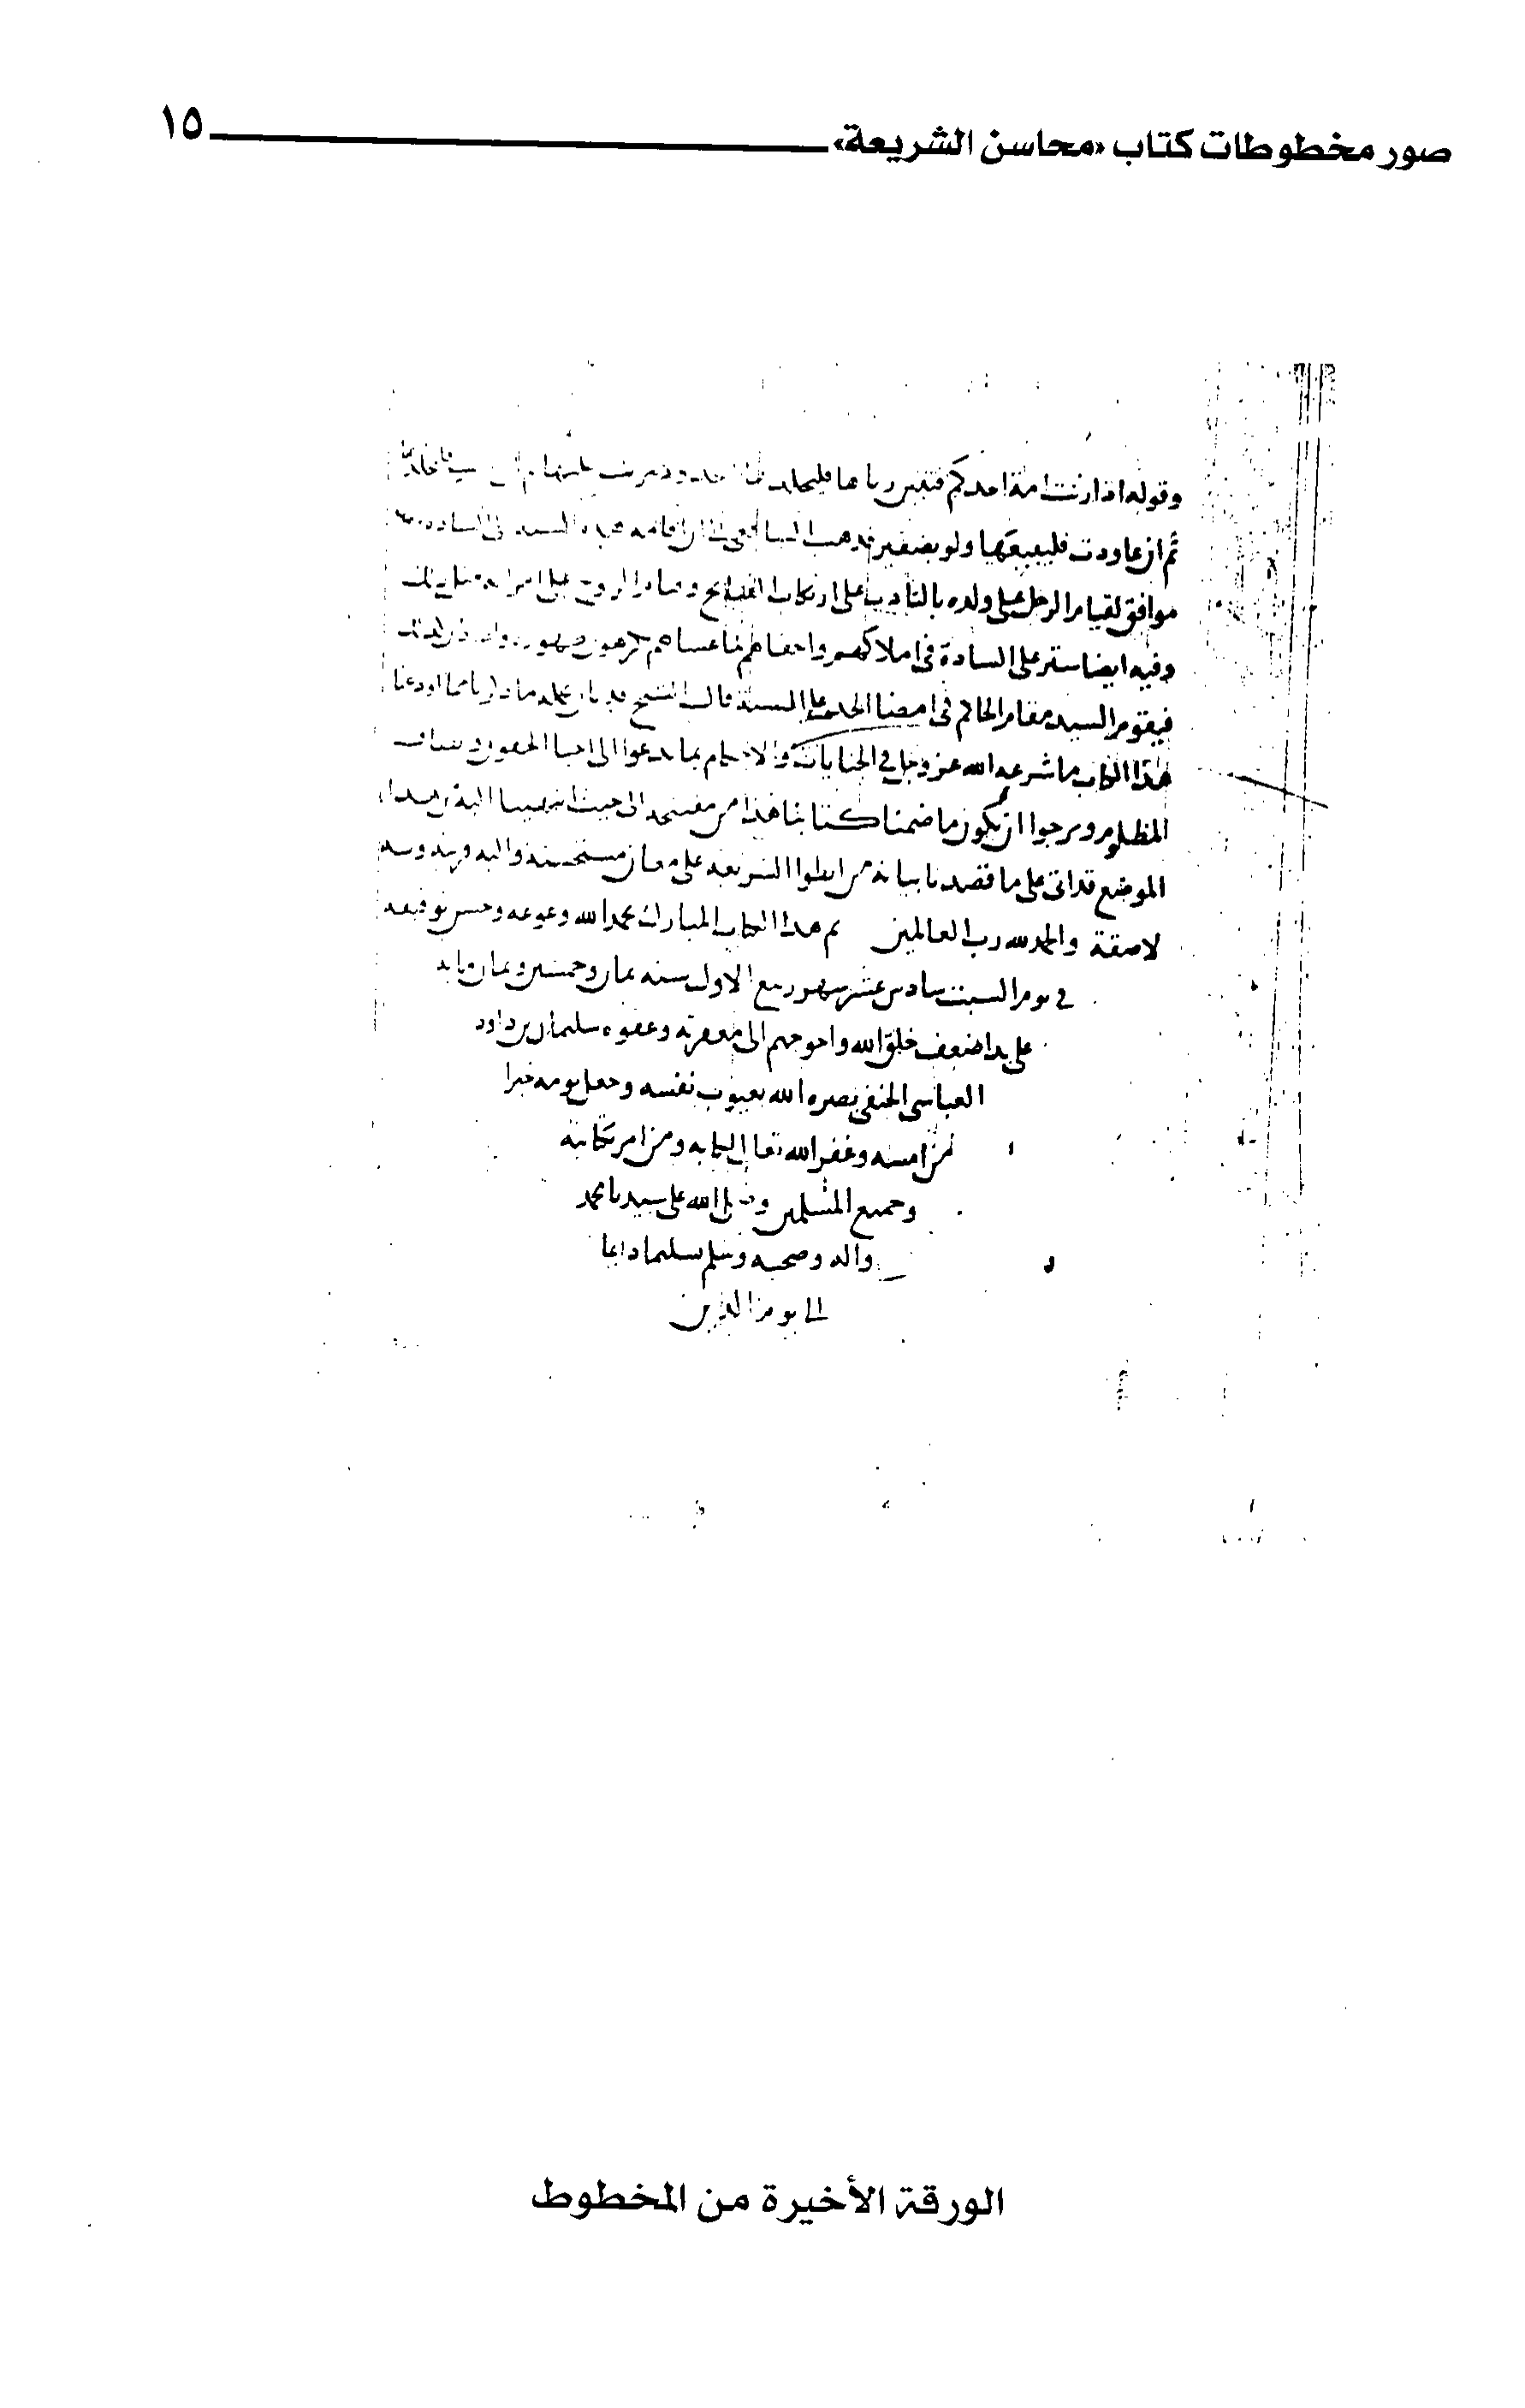 صور مخطوطات كتاب «محاسن الشريعة» ١٥
وقوله اذا زنت امة احدكم فتبين زناها فليجلدها
ثم ان عادت فليبيعها ولو بضفير
موافق لقيام الرجل على ولده بالتأديب على ارتكاب القبايح
وفيه ايضا ستر على السادة في املاكهم
فيقوم السيد مقام الحاكم في امضا الحد
هذا الكتاب ما شرعه الله عز وجل في الجنايات والاحكام بما يدعوا الى احيا الحقوق
المظلوم ونرجوا ان يكون ما ضمنا كتابنا هذا من مفتتحه الى حيث انتهينا اليه
الموضع قد اتى على ما قصدنا بيانه من انطوا الشريعة على معان مستحسنة
لاصقة والحمد لله رب العالمين تم هذا الكتاب المبارك بحمد الله وعونه وحسن توفيقه
في يوم السبت سادس عشر شهر ربيع الاول سنه ثمان وخمسين وثمان مايه
على يد اضعف خلق الله واحوجهم الى مغفرته وعفوه سليمان بن داود
العباسي الحنفي بصره الله بعيوب نفسه وجعل يومه خيرا
من امسه وغفر الله تعالى لكاتبه ومن امر بكتابته
وجميع المسلمين وصلى الله على سيدنا محمد
واله وصحبه وسلم تسليما دايما
الى يوم الدين
الورقة الأخيرة من المخطوط